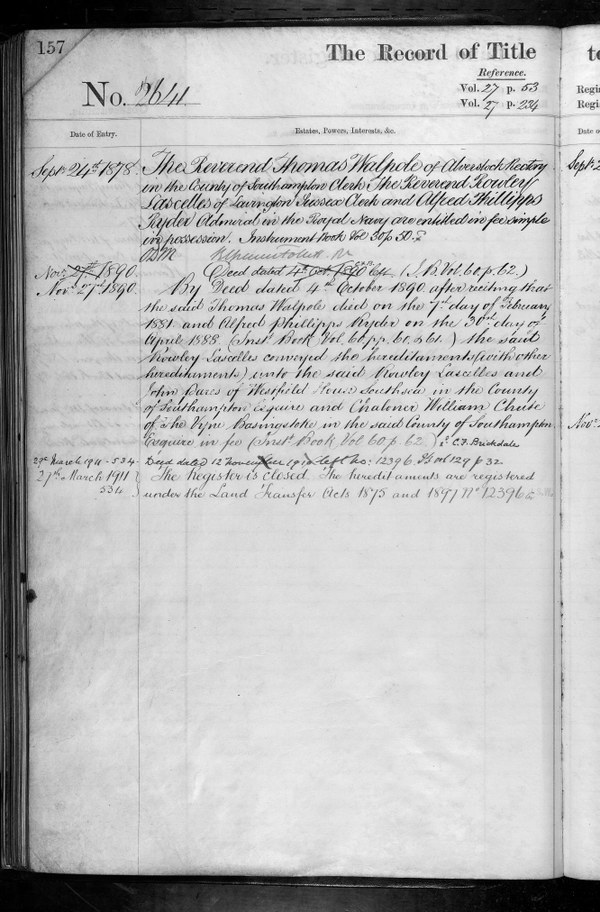 157
The Record of Title
Reference.
No. 2641
Vol. 27 p. 53
Vol. 27 p. 234
Date of Entry.
Estates, Powers, Interests, &c.
Septr 24th 1878.
The Reverend Thomas Walpole of Alverstock Rectory
in the County of Southampton Clerk The Reverend Rowley
Lascelles of Lavington Sussex Clerk and Alfred Phillipps
Ryder Admiral in the Royal Navy are entitled in fee simple
in possession. Instrument Book Vol 30 p 50.
Novr. 27th 1890.
Deed dated 4th Oct. 1890 (I. B. Vol. 60. p. 62.)
Novr. 27th 1890.
By Deed dated 4th October 1890 after reciting that
the said Thomas Walpole died on the 7th day of February
1881 and Alfred Phillipps Ryder on the 30th day of
April 1888 (Inst. Book, Vol. 60, pp. 60 & 61.) the said
Rowley Lascelles conveyed the hereditaments (with other
hereditaments) unto the said Rowley Lascelles and
John Bares of Westfield House Southsea in the County
of Southampton Esquire and Chaloner William Chute
of The Vyne Basingstoke in the said County of Southampton
Esquire in fee (Inst. Book, Vol 60 p. 62.) C. F. Brickdale
March 1911 - 534
Deed dated 12 November 1910 left No: 12396. vol 129 p 32
27th March 1911
The Register is closed. The hereditaments are registered
534
under the Land Transfer Acts 1875 and 1897 No 12396
to
Regi
Regi
Date o
Septr 2
Novr.